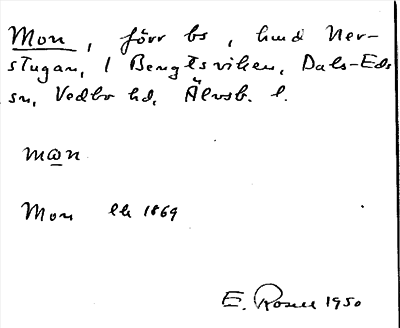 Mon, förr bs, hmd Ner-
stugan, 1 Bengtsviken, Dals-Eds
sn, Vedbo hd, Älvsb. l.
mωn
Mon lk 1869
E. Rosell 1950